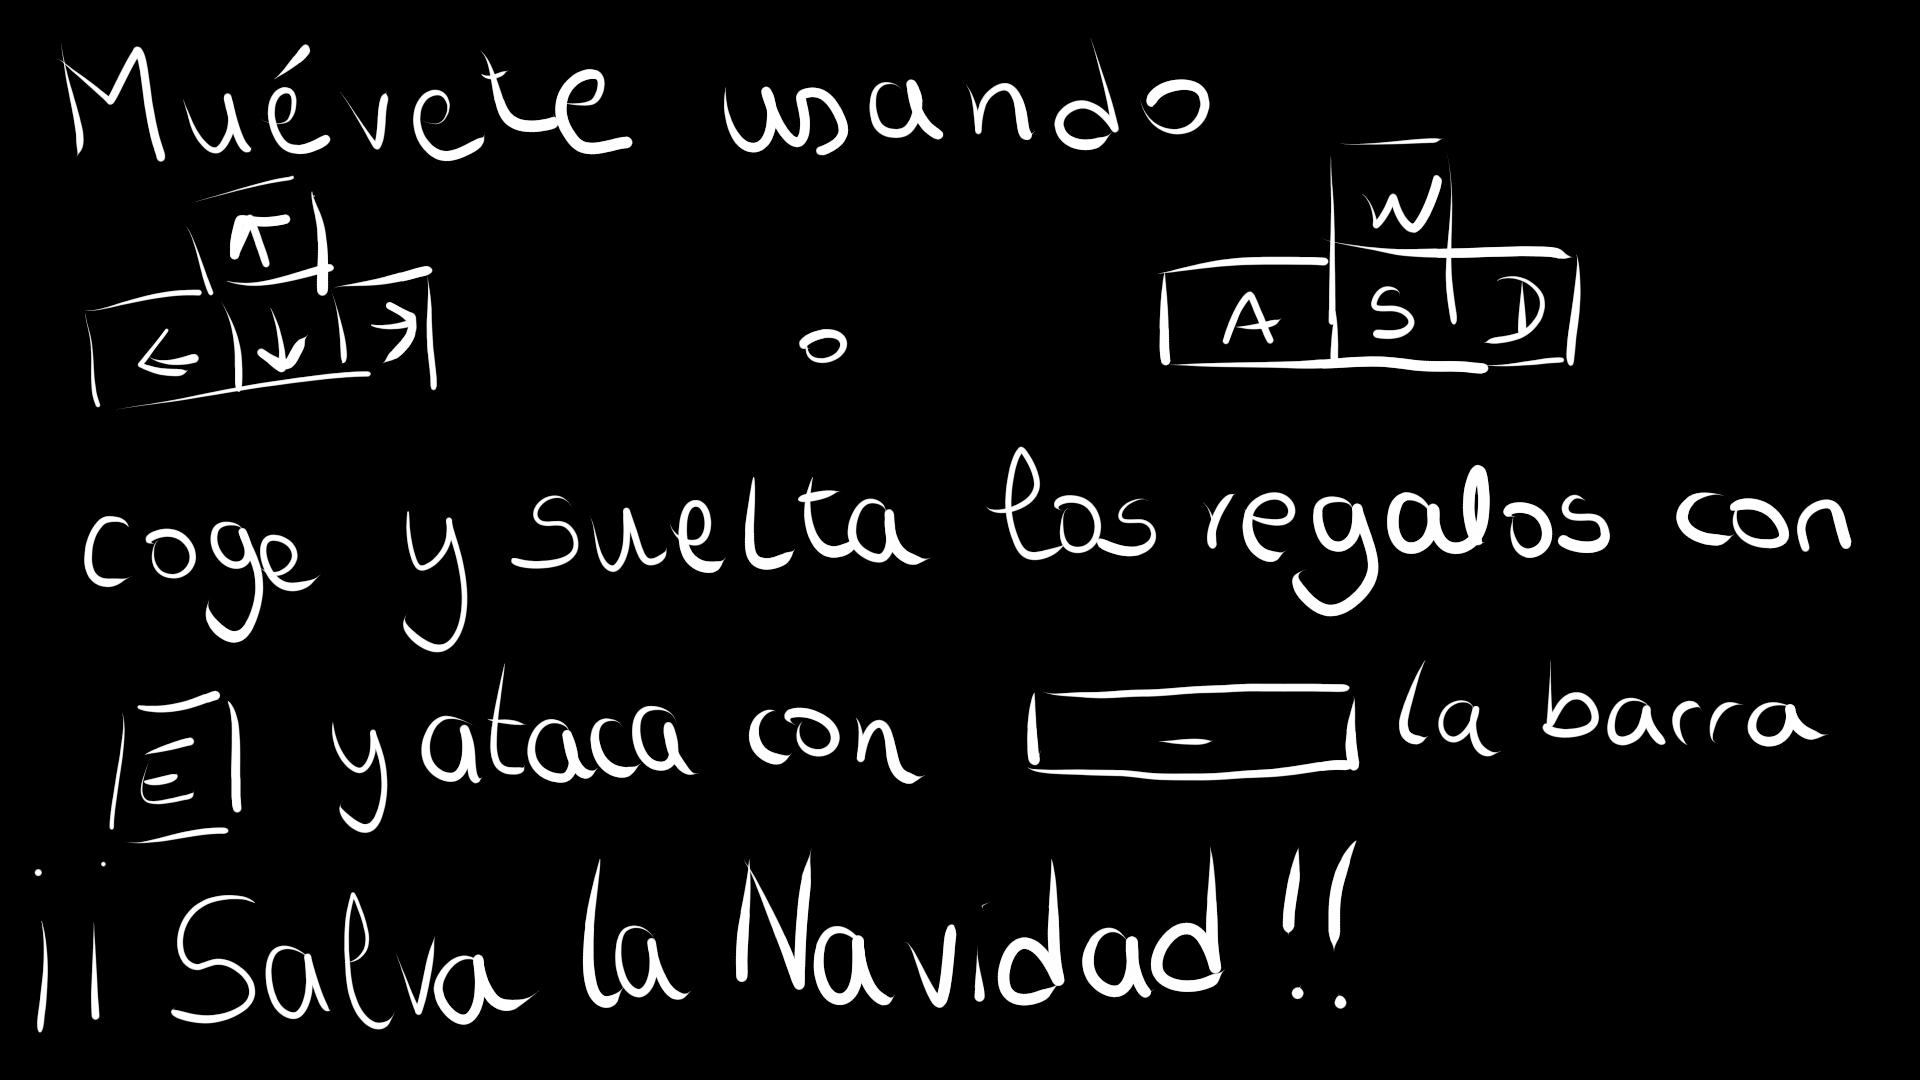 Muévete usando
↑ W
← ↓ → o A S D
coge y suelta los regalos con
E y ataca con - la barra
¡¡Salva la Navidad!!